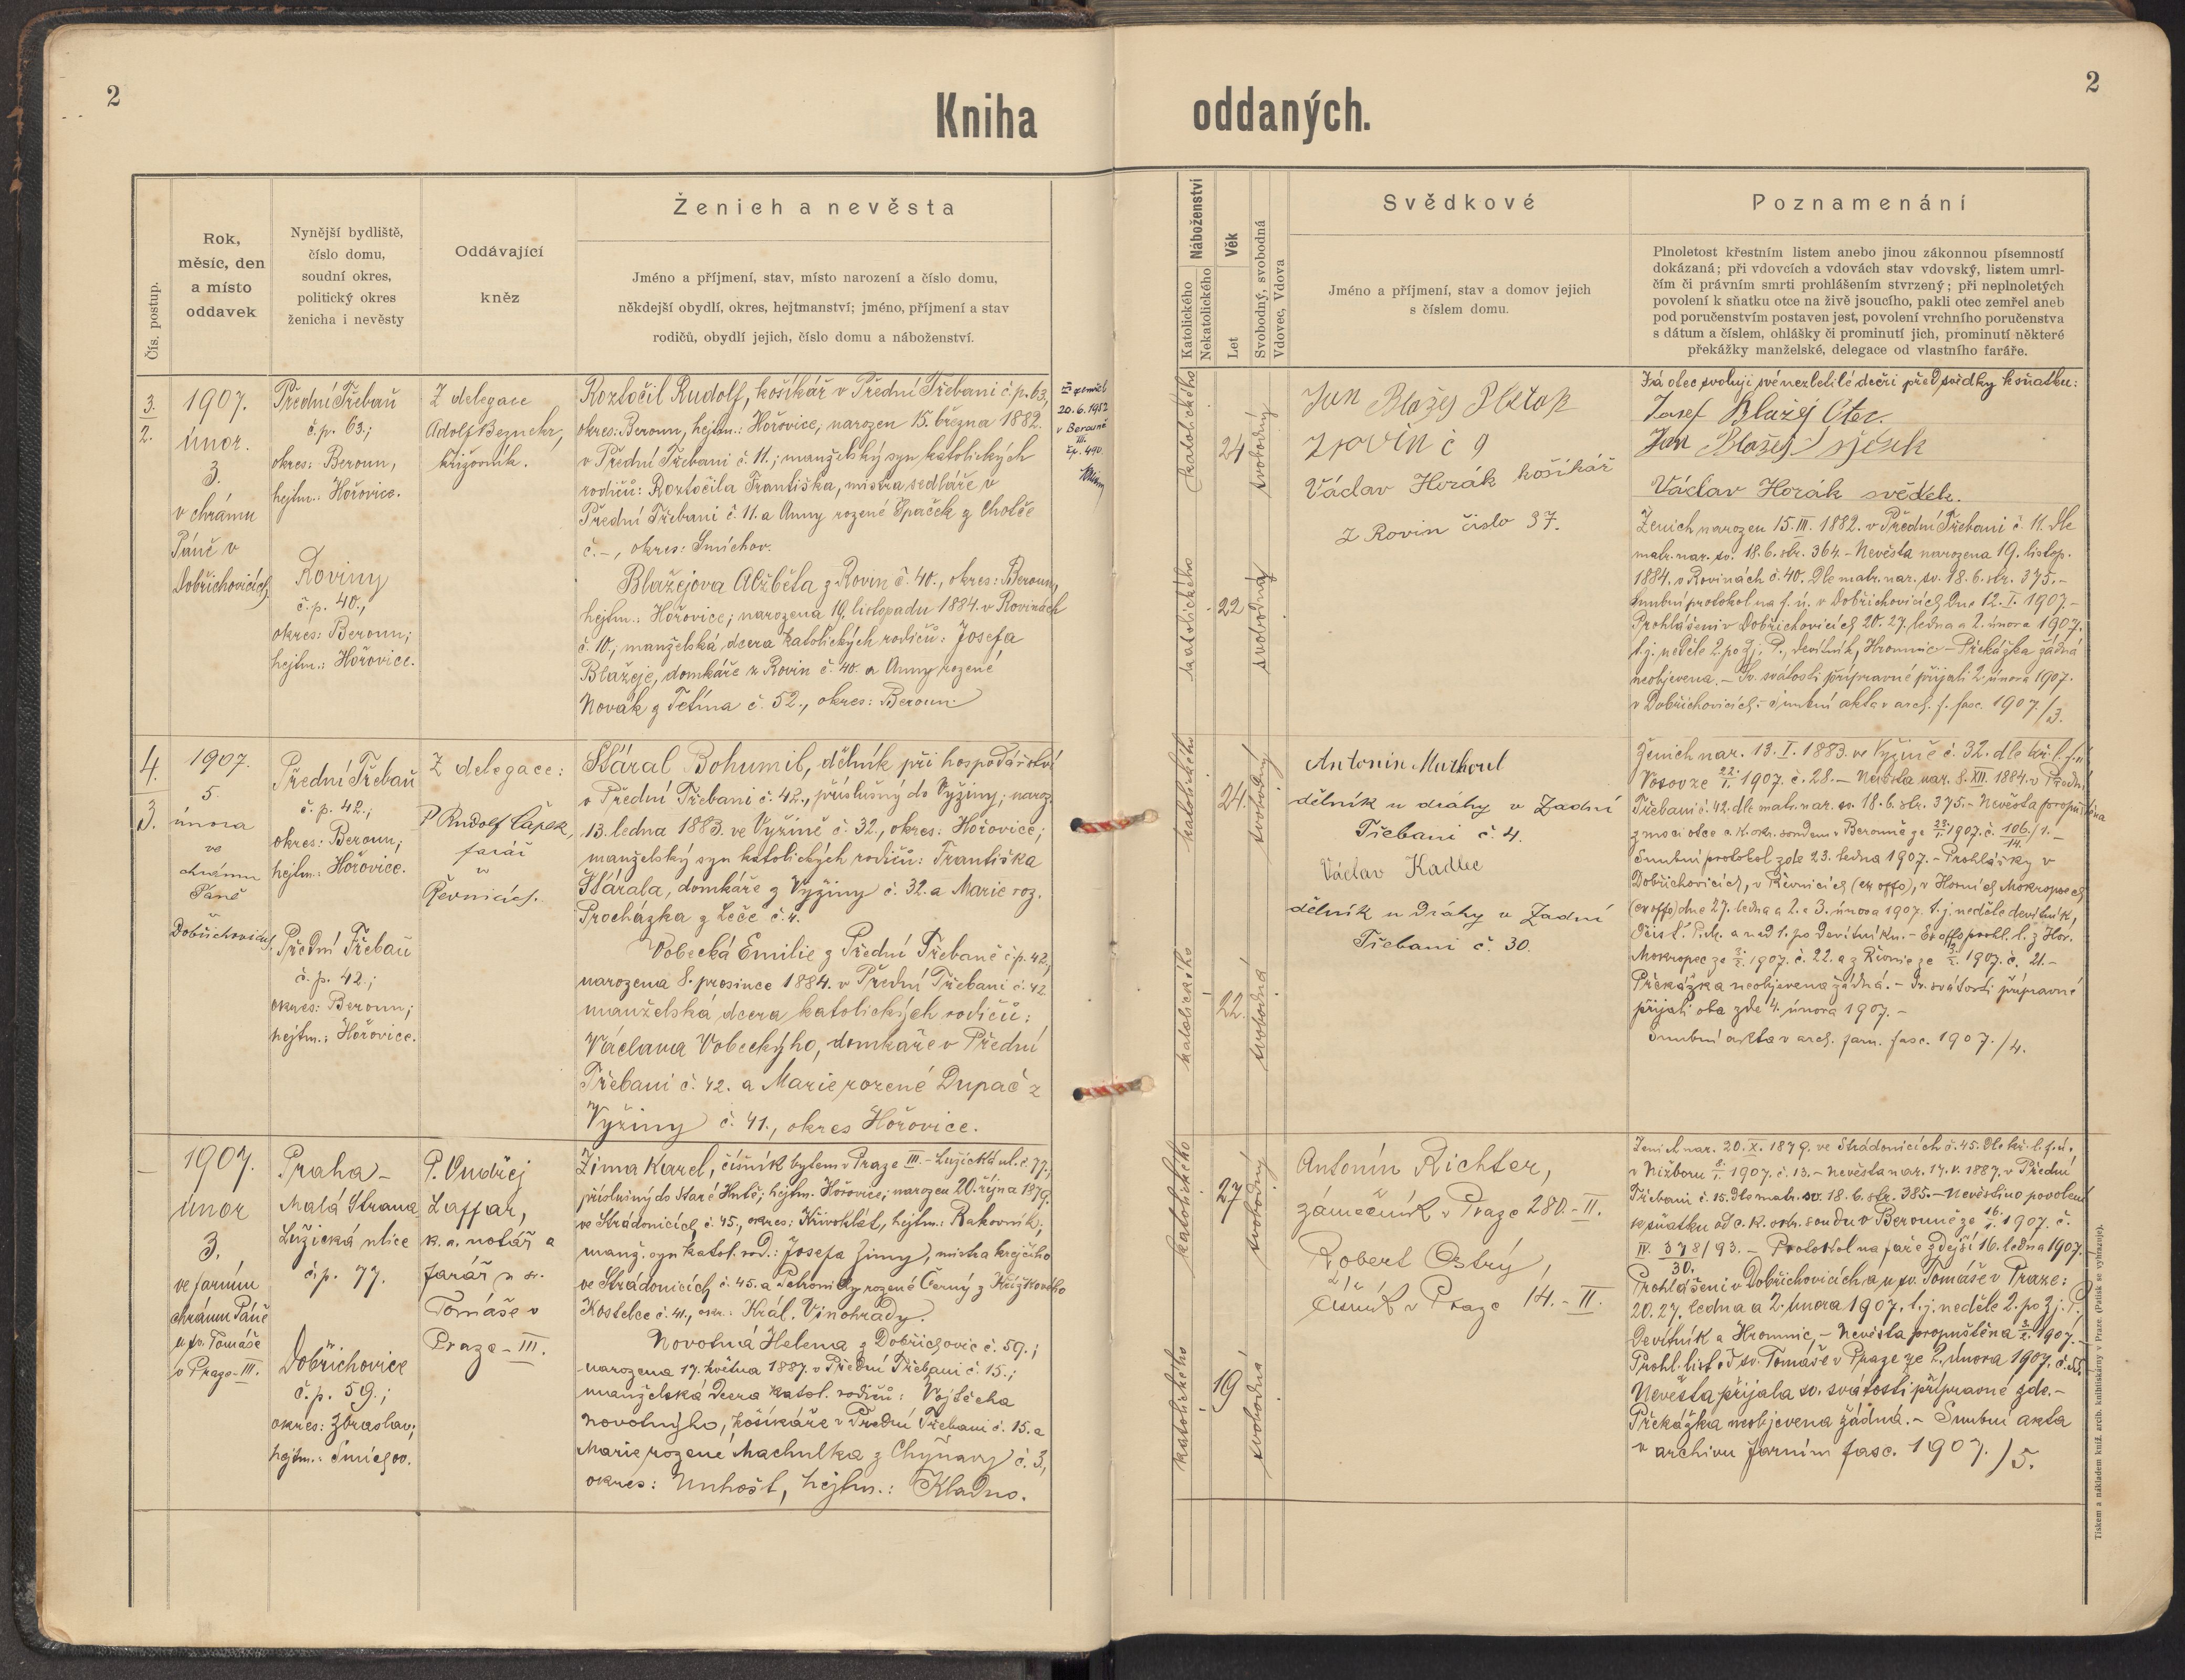 2
Kniha
Čís. postup.
Rok,
měsíc, den
a místo
oddavek
Nynější bydliště,
číslo domu,
soudní okres,
politický okres
ženicha i nevěsty
Oddávající
kněz
Ženich a nevěsta
Jméno a příjmení, stav, místo narození a číslo domu,
někdejší obydlí, okres, hejtmanství; jméno, příjmení a stav
rodičů, obydlí jejich, číslo domu a náboženství.
3.
2.
1907.
únor.
3.
v chrámu
Páně v
Dobřichovicích
Přední Třebaň
č.p. 63.;
okres: Beroun,
hejtm.: Hořovice.
Roviny
č.p. 40.,
okres: Beroun;
hejtm.: Hořovice.
Z delegace
Adolf
křižovník.
Roztočil Rudolf, košíkář v Přední Třebani č.p. 63,
okres: Beroun, hejtm.: Hořovice, narozen 15. března 1882.
v Přední Třebani č. 11.; manželský syn katolických
rodičů: Roztočila Františka, mistra sedláře v
Přední Třebani č. 11. a Anny rozené Špaček z Choteče
č. -, okres: Smíchov.
Blažejova Alžběta z Rovin č. 40., okres: Beroun,
hejtm.: Hořovice; narozena 19. listopadu 1884. v Rovinách
č. 10., manželská dcera katolických rodičů: Josefa
Blažeje, domkáře z Rovin č. 40. a Anny rozené
Novák z Tetína č. 52., okres: Beroun.
20.6.1952
v Berouně
III.
čp. 490.
4.
3.
1907.
5.
února
ve
chrámu
Páně
Dobřichovicích
Přední Třebaň
č.p. 42.;
okres: Beroun;
hejtm.: Hořovice.
Přední Třebaň
č.p. 42.;
okres: Beroun;
hejtm.: Hořovice.
Z delegace:
P. Rudolf Čapek,
farář
v
Řevnicích.
Štáral Bohumil, dělník při hospodářství
v Přední Třebani č. 42., příslušný do Vyžiny; naroz.
13. ledna 1883. ve Vyžině č. 32., okres: Hořovice;
manželský syn katolických rodičů: Františka
Štárala, domkáře z Vyžiny č. 32. a Marie roz.
Procházka z Leče č. 4.
Vobecká Emilie z Přední Třebaně č.p. 42.,
narozena 8. prosince 1884. v Přední Třebani č. 42.
manželská dcera katolických rodičů:
Václava Vobeckýho, domkáře v Přední
Třebani č. 42. a Marie rozené Dupač z
Vyžiny č. 41., okres Hořovice.
1907.
únor
3.
ve farním
chrámu Páně
u sv. Tomáše
v Praze-III.
Praha-
Malá Strana
Lužická ulice
čp. 77.
Dobřichovice
č.p. 59.;
okres: Zbraslav;
hejtm.: Smíchov.
P. Ondřej
Laffar,
k.a. notář a
farář u sv.
Tomáše v
Praze-III.
Zima Karel, číšník bytem v Praze III.- Lužická ul. č. 77.,
příslušný do Staré Hutě; hejtm. Hořovice; narozen 20. října 1879.
ve Strádonicích č. 45., okres: Křivoklát, hejtm.: Rakovník;
manž. syn katol. rod.: Josefa Zimy, mistra krejčího
ve Strádonicích č. 45. a Petronily rozené Černý z Křížkového
Kostelce č. 41., okr.: Král. Vinohrady.
Novotná Helena z Dobřichovic č. 59.;
narozena 17. května 1887. v Přední Třebani č. 15.;
manželská dcera katol. rodičů: Vojtěcha
Novotnýho, košíkáře v Přední Třebani č. 15. a
Marie rozené Machulka z Chyňavy č. 3,
okres: Unhošť, hejtm.: Kladno.
2
oddaných.
Náboženství
Katolického
Nekatolického
Věk
Let
Svobodný, svobodná
Vdovec, Vdova
Svědkové
Jméno a příjmení, stav a domov jejich
s číslem domu.
Poznamenání
Plnoletost křestním listem anebo jinou zákonnou písemností
dokázaná; při vdovcích a vdovách stav vdovský, listem umrl-
čím či právním smrti prohlášením stvrzený; při neplnoletých
povolení k sňatku otce na živě jsoucího, pakli otec zemřel aneb
pod poručenstvím postaven jest, povolení vrchního poručenstva
s dátum a číslem, ohlášky či prominutí jich, prominutí některé
překážky manželské, delegace od vlastního faráře.
katolického
24
svobodný
katolického
22
svobodná
Jan Blažej
z rovin č 9
Václav Horák košíkář
z Rovin číslo 37.
Já otec svoluji své nezletilé dceři před svědky k sňatku:
Josef Blažej Otec.
Jan Blažej
Václav Horák svědek.
Ženich narozen 15. III. 1882. v Přední Třebani č. 11. dle
matr. nar. sv. 18. b. str. 364. - Nevěsta narozena 19. listop.
1884. v Rovinách č. 40. Dle matr. nar. sv. 18. b. str. 375. -
Snubní protokol na f. ú. v Dobřichovicích dne 12. I. 1907. -
Prohlášeni v Dobřichovicích 20. 27. ledna a 2. února 1907.
t.j. neděle 2. po Zj. P., devítník, Hromnic - Překážka žádná
neobjevena. - Sv. svátosti přípravné přijali 2. února 1907.
v Dobřichovicích. - Snubní akta v arch. f. fasc. 1907./3.
katolického
24.
svobodný
katolického
22.
svobodná
Antonín Markoul
dělník u dráhy v Zadní
Třebani č. 4.
Václav Kadlec
dělník u dráhy v Zadní
Třebani č. 30.
Ženich nar. 13. I. 1883. ve Vyžině č. 32. dle kř. l. f. ú.
Vosov ze 22./1. 1907. č. 28. - Nevěsta nar. 8. XII. 1884. v Přední
Třebani č. 42. dle matr. nar. sv. 18. b. str. 375. - Nevěsta propuštěna
z moci otce c. k. okr. soudem v Berouně ze 23./1. 1907. č. 106/14./1. -
Snubní protokol zde 23. ledna 1907. - Prohlášky v
Dobřichovicích, v Řevnicích (ex offo), v Horních Mokropsech
(ex offo) dne 27. ledna a 2. a 3. února 1907. t.j. neděle devítník,
Očist. P.M. a ned 1. po Devítníku. - Ex offo prohl. l. z Hor.
Mokropec ze 3./2. 1907. č. 22. a z Řevnic ze 3./2. 1907. č. 21. -
Překážka neobjevena žádná. - Sv. svátosti přípravné
přijali oba zde 4. února 1907. -
Snubní akta v arch. farn. fasc. 1907./4.
katolického
27
svobodný
katolického
19
svobodná
Antonín Richter,
zámečník v Praze 280.-II.
Robert Ostrý,
číšník v Praze 14.-II.
Ženich nar. 20. X. 1879. ve Strádonicích č. 45. Dle kř. l. f. ú.
v Nižboru 8./1. 1907. č. 13. - Nevěsta nar. 17. V. 1887. v Přední
Třebani č. 15. Dle matr. sv. 18. b. str. 385. - Nevěstino povolení
ke sňatku od c. k. okr. soudu v Berouně ze 16./1. 1907. č.
IV. 378/93./30. - Protokol na faře zdejší 16. ledna 1907.
Prohlášeni v Dobřichovicích a u sv. Tomáše v Praze:
20. 27. ledna a 2. února 1907. t.j. neděle 2. po Zj. P.
Devítník a Hromnic, - Nevěsta propuštěna 3./2. 1907. -
Prohl. list od sv. Tomáše v Praze ze 2. února 1907.
Nevěsta přijala sv. svátosti přípravné zde. -
Překážka neobjevena žádná. - Snubní akta
v archivu farním fasc. 1907./5.
Tiskem a nákladem kníž. arcib. knihtiskárny v Praze. (Patisk se vyhrazuje).